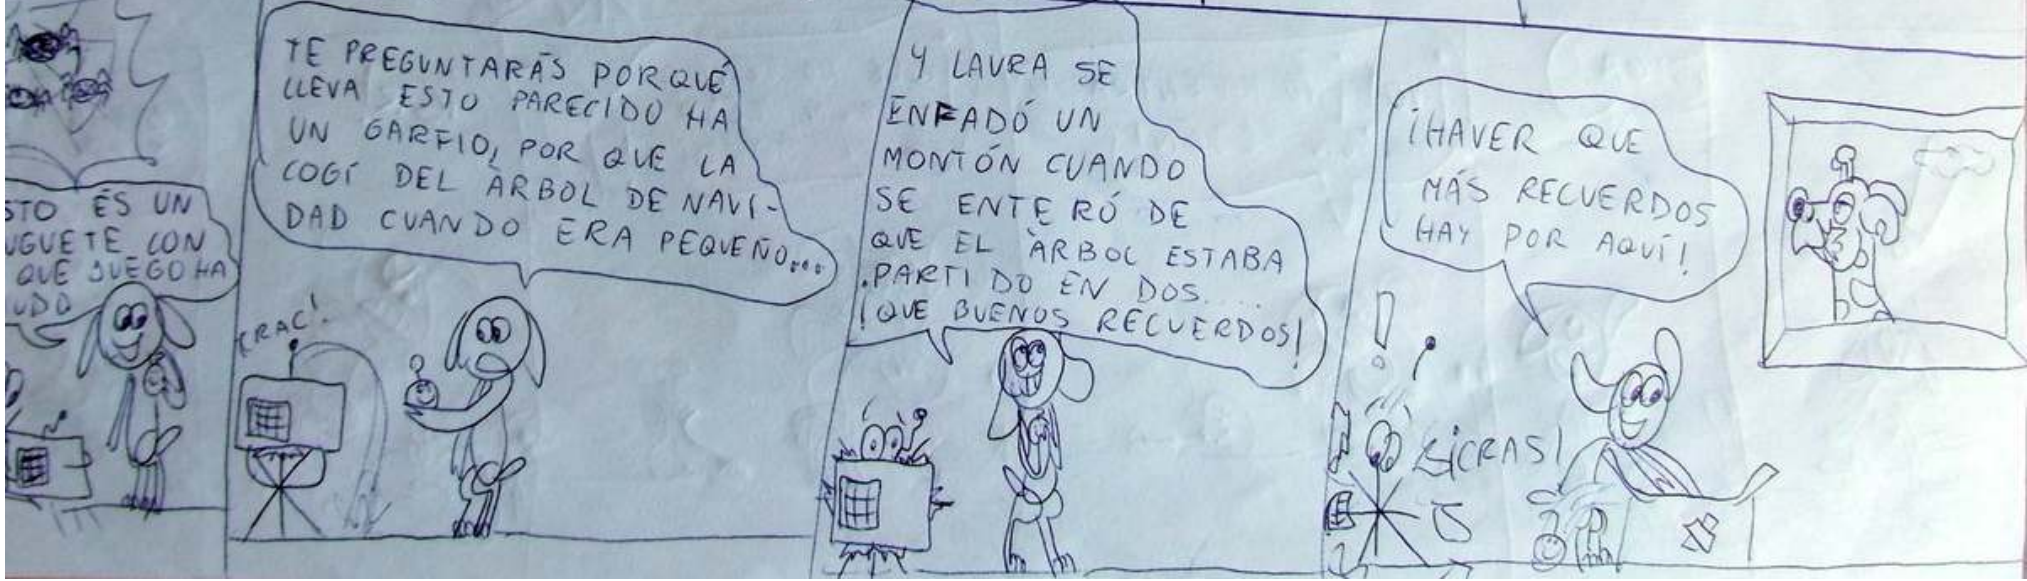 STO ES UN
UGUETE CON
QUE JUEGO HA
UDO
TE PREGUNTARÁS PORQUÉ
LLEVA ESTO PARECIDO HA
UN GARFIO, POR QUE LA
COGÍ DEL ÀRBOL DE NAVI-
DAD CUANDO ERA PEQUEÑO...
¡CRAC!
Y LAURA SE
ENFADÓ UN
MONTÓN CUANDO
SE ENTERÓ DE
QUE EL ÀRBOL ESTABA
PARTIDO EN DOS...
¡QUE BUENOS RECUERDOS!
¡HAVER QUE
MÁS RECUERDOS
HAY POR AQUÍ!
¡CRAS!